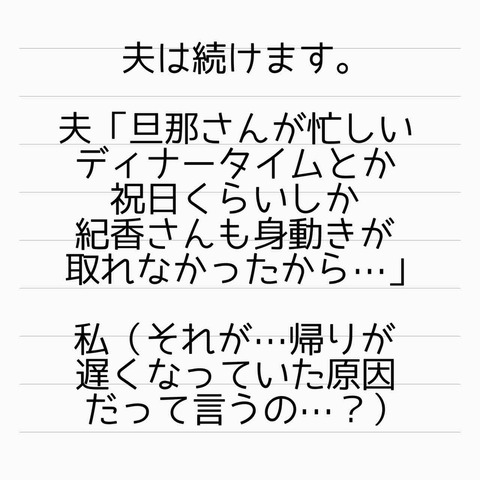 夫は続けます。
夫「旦那さんが忙しい
ディナータイムとか
祝日くらいしか
紀香さんも身動きが
取れなかったから…」
私（それが…帰りが
遅くなっていた原因
だって言うの…？）